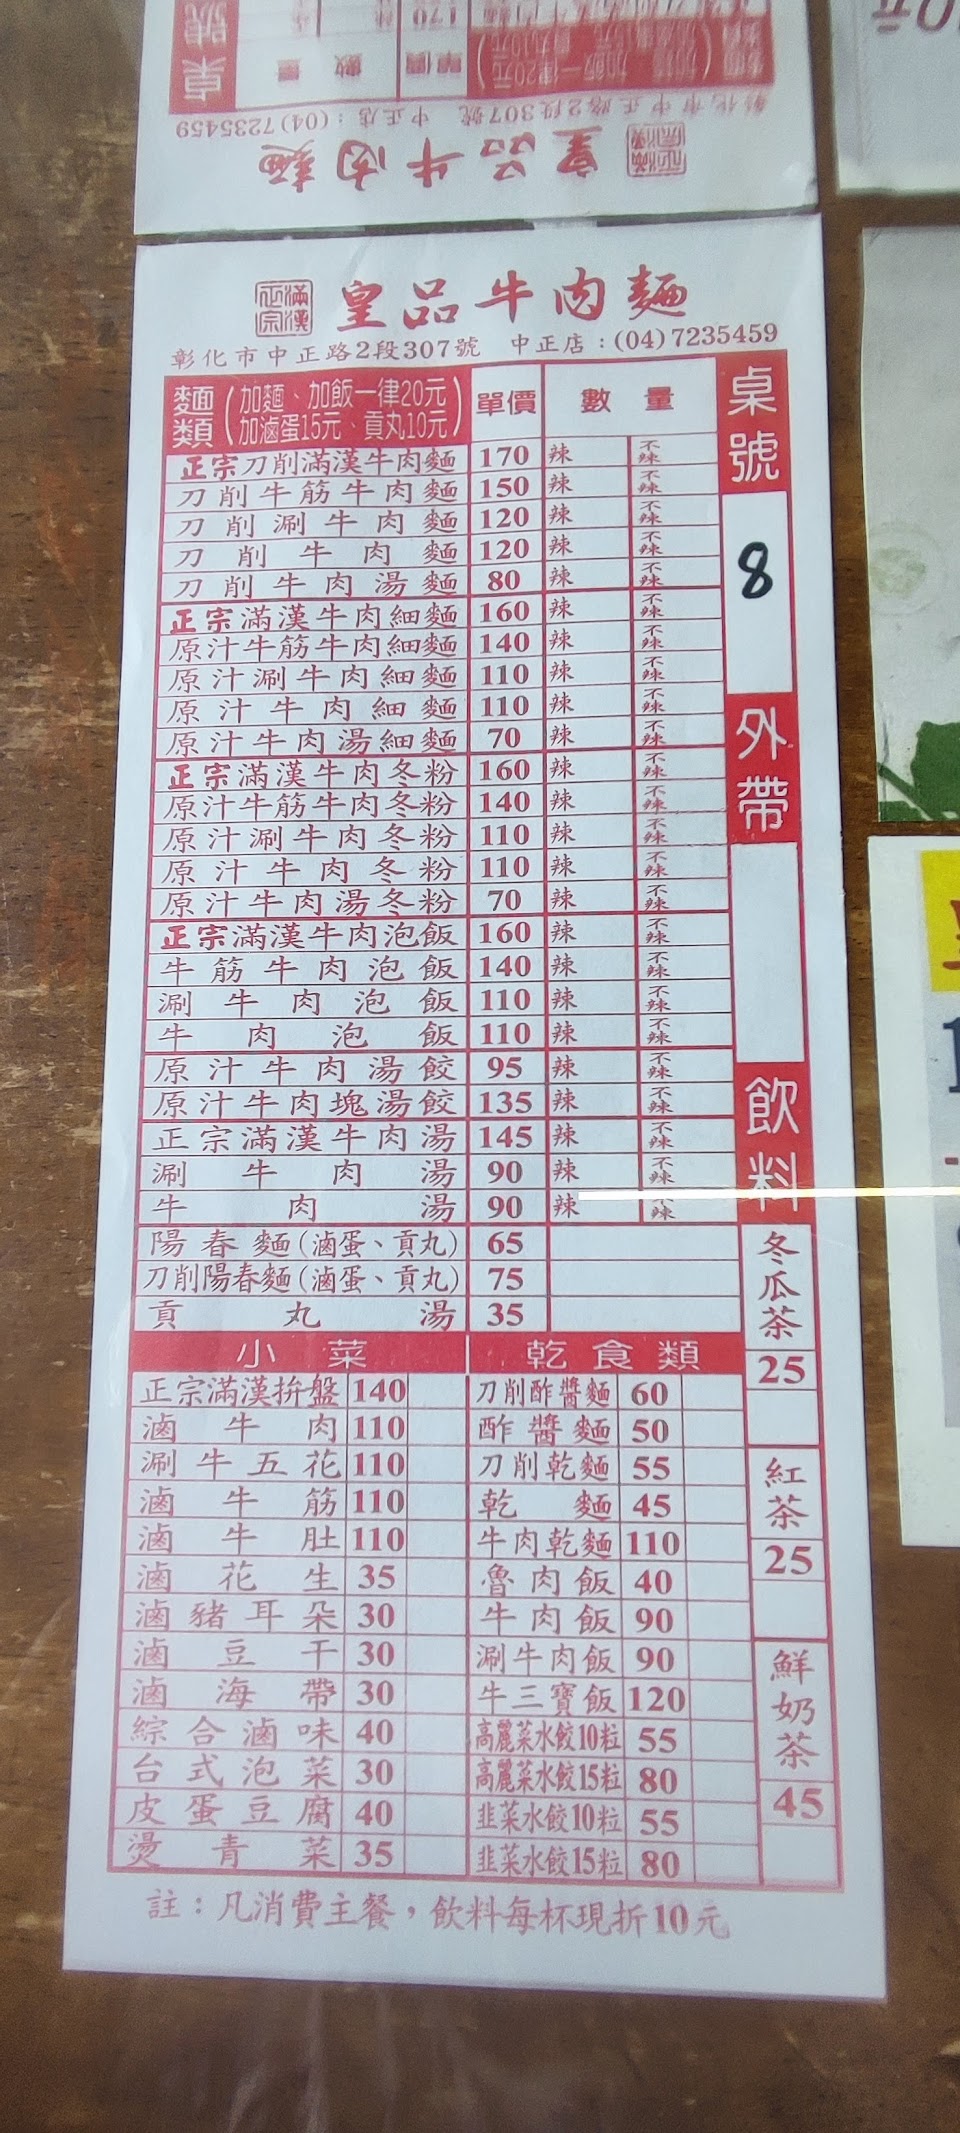 桌號
數量
單價
170
彰化市中正路2段307號 中正店：(04)7235459
皇品牛肉麵
滿漢正宗
滿漢正宗 皇品牛肉麵
彰化市中正路2段307號 中正店：(04)7235459
麵類 (加麵、加飯一律20元 加滷蛋15元、貢丸10元) 單價 數量
正宗刀削滿漢牛肉麵 170 辣 不辣
刀削牛筋牛肉麵 150 辣 不辣
刀削涮牛肉麵 120 辣 不辣
刀削牛肉麵 120 辣 不辣
刀削牛肉湯麵 80 辣 不辣
正宗滿漢牛肉細麵 160 辣 不辣
原汁牛筋牛肉細麵 140 辣 不辣
原汁涮牛肉細麵 110 辣 不辣
原汁牛肉細麵 110 辣 不辣
原汁牛肉湯細麵 70 辣 不辣
正宗滿漢牛肉冬粉 160 辣 不辣
原汁牛筋牛肉冬粉 140 辣 不辣
原汁涮牛肉冬粉 110 辣 不辣
原汁牛肉冬粉 110 辣 不辣
原汁牛肉湯冬粉 70 辣 不辣
正宗滿漢牛肉泡飯 160 辣 不辣
牛筋牛肉泡飯 140 辣 不辣
涮牛肉泡飯 110 辣 不辣
牛肉泡飯 110 辣 不辣
原汁牛肉湯餃 95 辣 不辣
原汁牛肉塊湯餃 135 辣 不辣
正宗滿漢牛肉湯 145 辣 不辣
涮牛肉湯 90 辣 不辣
牛肉湯 90 辣 不辣
陽春麵(滷蛋、貢丸) 65
刀削陽春麵(滷蛋、貢丸) 75
貢丸湯 35
小菜 乾食類
正宗滿漢拚盤 140 刀削酢醬麵 60
滷牛肉 110 酢醬麵 50
涮牛五花 110 刀削乾麵 55
滷牛筋 110 乾麵 45
滷牛肚 110 牛肉乾麵 110
滷花生 35 魯肉飯 40
滷豬耳朵 30 牛肉飯 90
滷豆干 30 涮牛肉飯 90
滷海帶 30 牛三寶飯 120
綜合滷味 40 高麗菜水餃10粒 55
台式泡菜 30 高麗菜水餃15粒 80
皮蛋豆腐 40 韭菜水餃10粒 55
燙青菜 35 韭菜水餃15粒 80
桌號
8
外帶
飲料
冬瓜茶
25
紅茶
25
鮮奶茶
45
註：凡消費主餐，飲料每杯現折10元